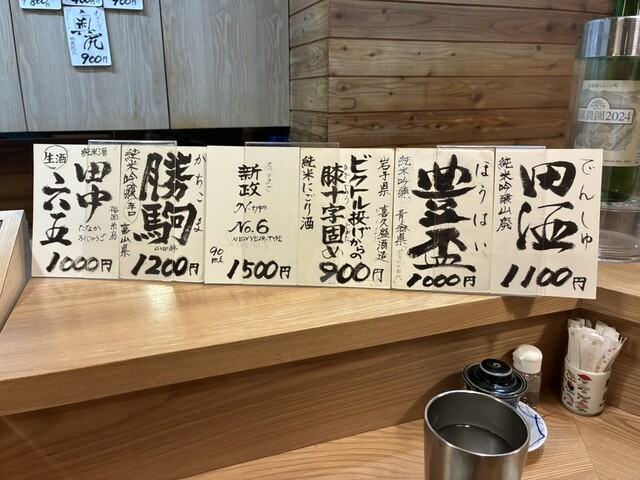 900円
純米酒
生酒
田中
六五
たなか
ろくじゅうご
福岡県
1000円
かちこま
勝駒
純米吟醸
富山県
1200円
あらまさ
新政
N-type
No.6
NEW YEAR-TYPE
90ml
1500円
岩手県 喜久盛酒造
ビフテル投げからの
膝十字固め
純米にごり酒
900円
ほうはい
豊盃
純米吟醸 青森県
1000円
でんしゅ
田酒
純米吟醸山廃
1100円
農園2024